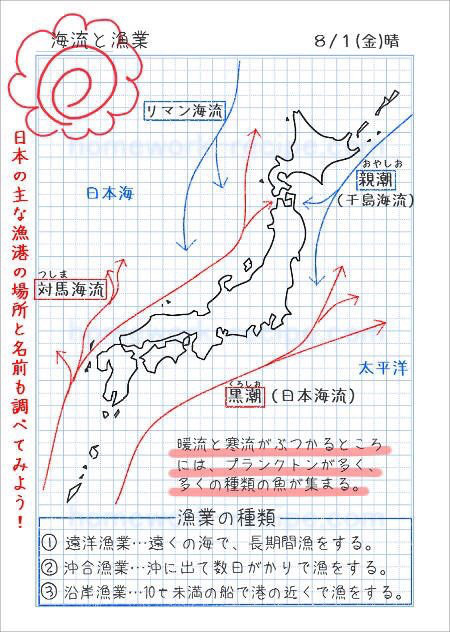 海流と漁業
8/1(金)晴
リマン海流
日本海
おやしお
親潮
(千島海流)
つしま
対馬海流
日本の主な漁港の場所と名前も調べてみよう!
太平洋
くろしお
黒潮(日本海流)
暖流と寒流がぶつかるところ
には、プランクトンが多く、
多くの種類の魚が集まる。
漁業の種類
① 遠洋漁業…遠くの海で、長期間漁をする。
② 沖合漁業…沖に出て数日がかりで漁をする。
③ 沿岸漁業…10t未満の船で港の近くで漁をする。